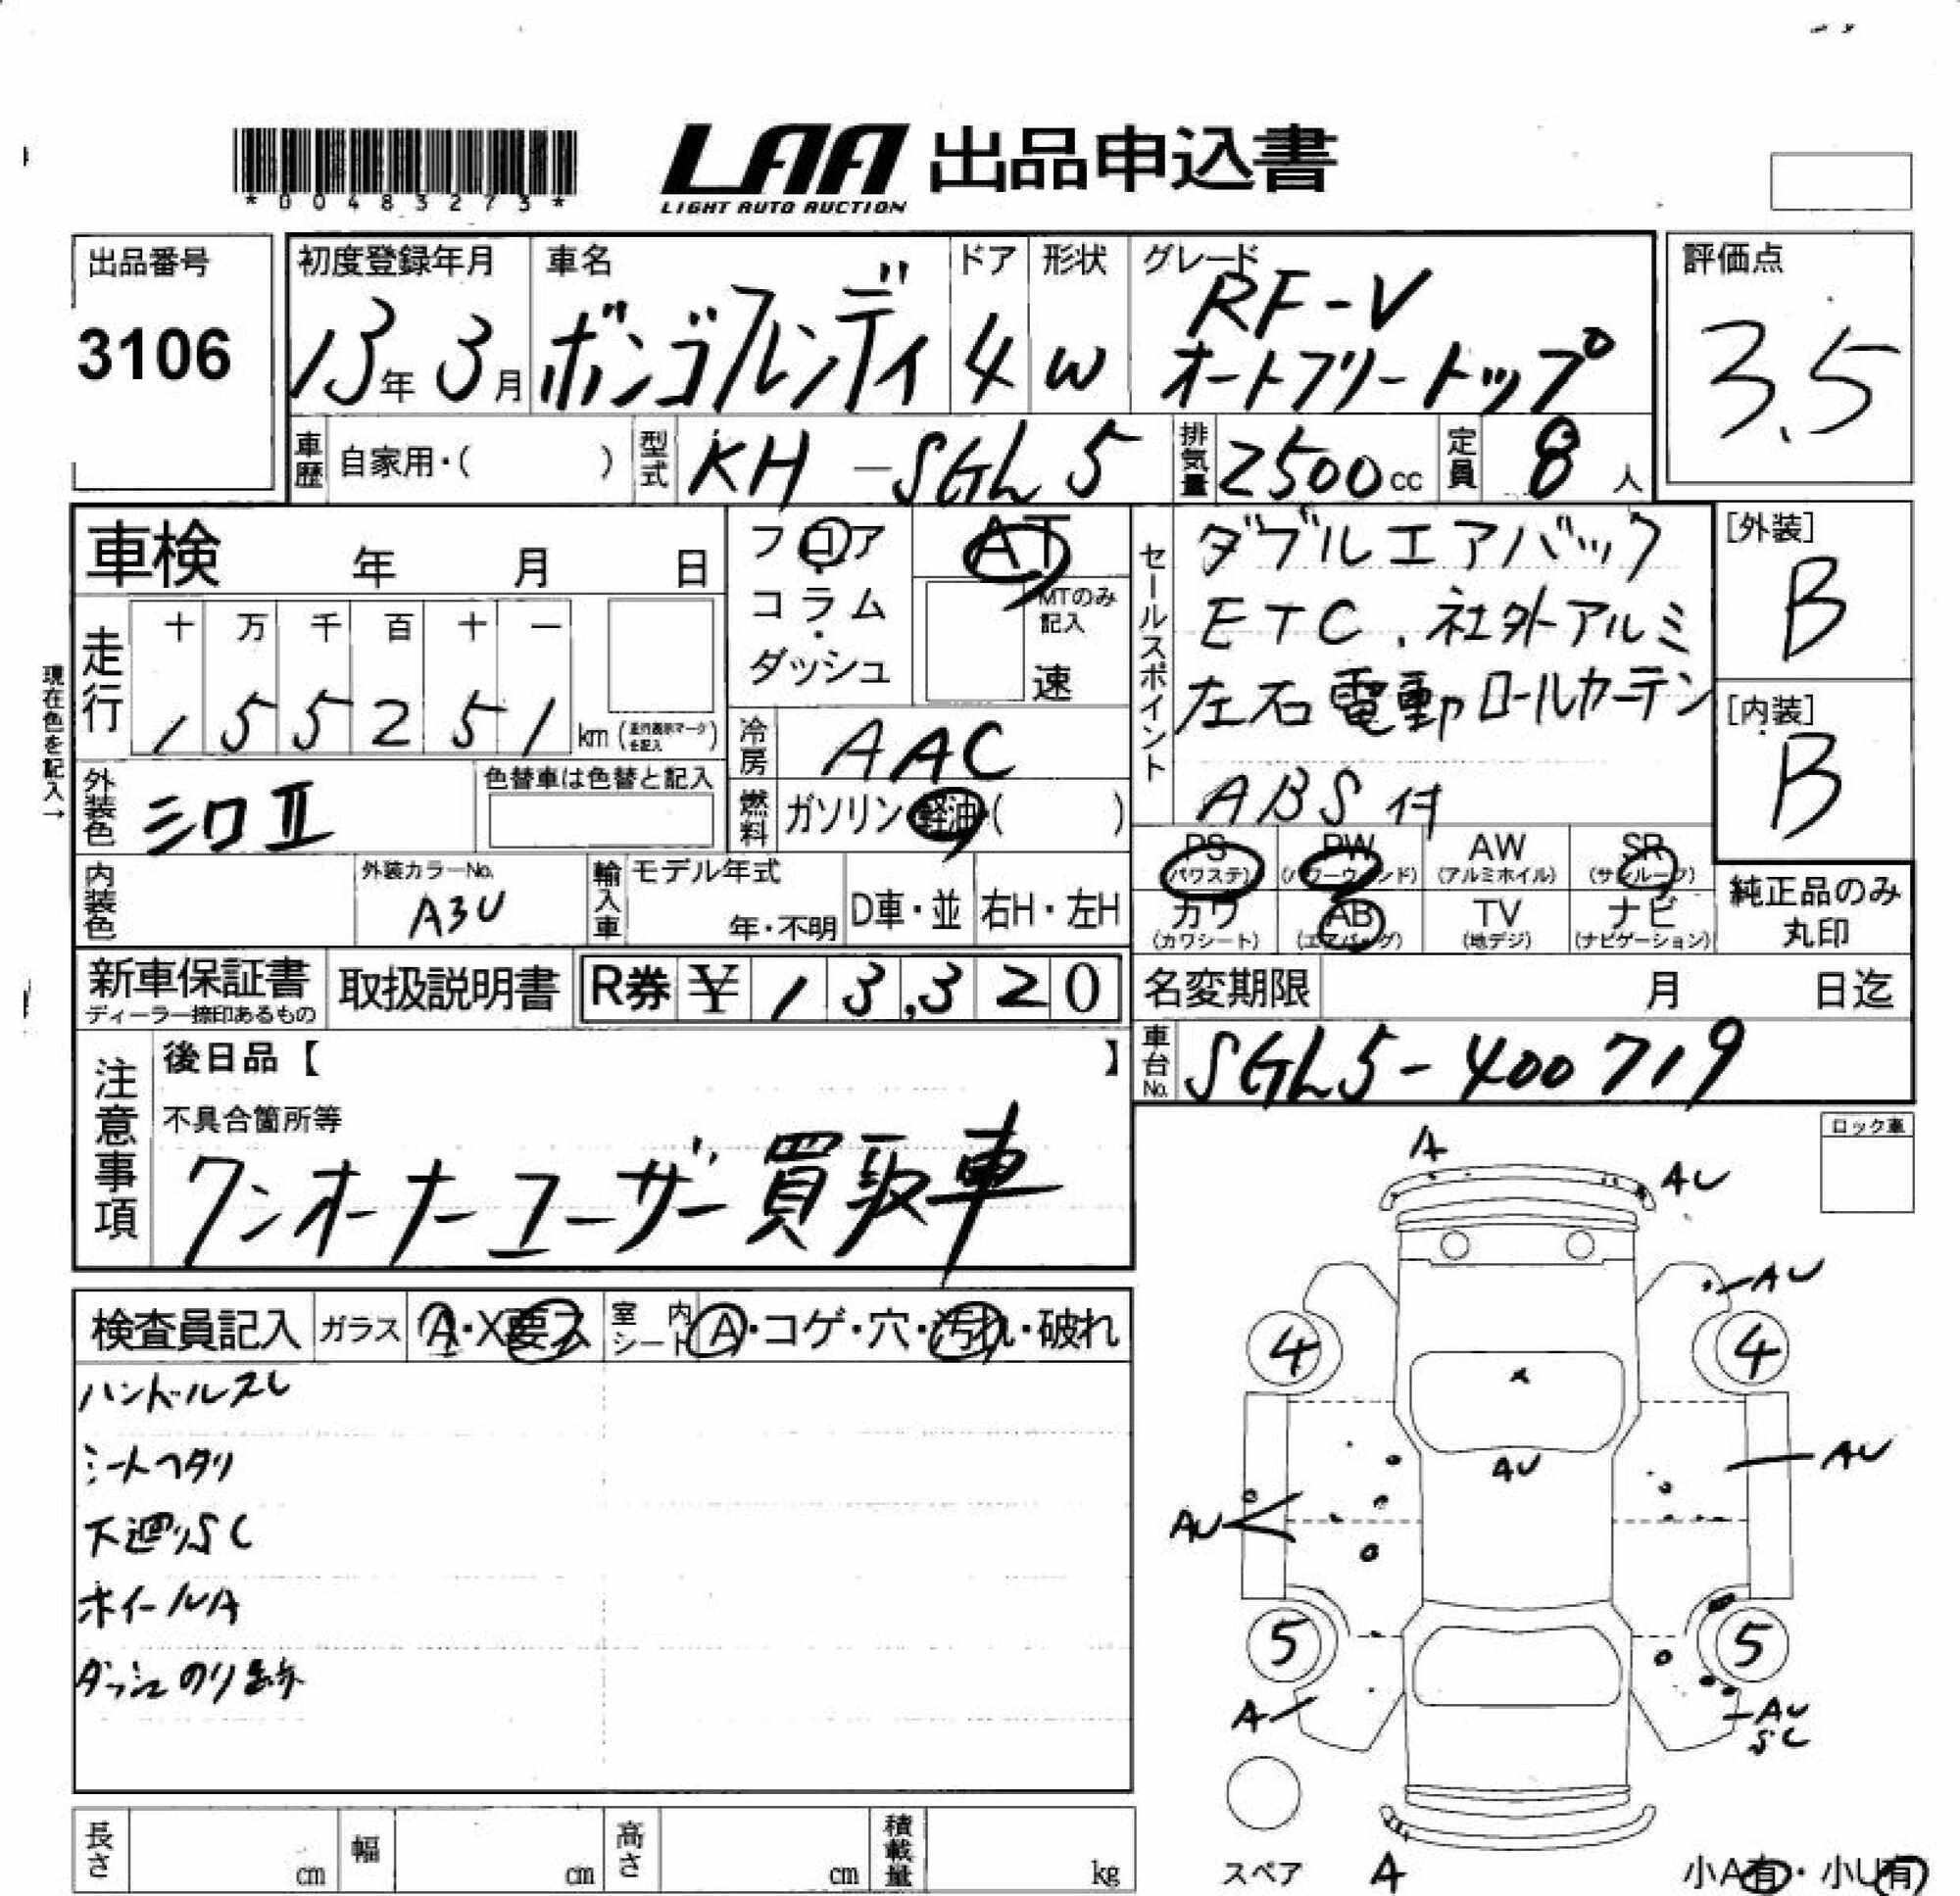 *00483273*
LAA 出品申込書
LIGHT AUTO AUCTION
出品番号
3106
初度登録年月
13年 3月
車名
ボンゴフレンディ
ドア
4
形状
W
グレード
RF-V
オートフリートップ
評価点
3.5
車歴
自家用・( )
型式
KH-SGL5
排気量
2500cc
定員
8人
車検 年 月 日
フロア
コラム
ダッシュ
AT
MTのみ
記入
速
セールスポイント
ダブルエアバック
ETC.社外アルミ
左右電動ロールカーテン
ABS付
[外装]
B
[内装]
B
現在色を記入→
走行
十 万 千 百 十 一
1 5 5 2 5 1 km
冷房
AAC
燃料
ガソリン・軽油・( )
外装色
シロⅡ
色替車は色替と記入
内装色
外装カラーNo.
A3U
輸入車
モデル年式
年・不明
D車・並
右H・左H
PS
(パワステ)
PW
(パワーウィンド)
AW
(アルミホイル)
SR
(サンルーフ)
カワ
(カワシート)
AB
(エアバッグ)
TV
(地デジ)
ナビ
(ナビゲーション)
純正品のみ
丸印
新車保証書
ディーラー捺印あるもの
取扱説明書
R券 ¥ 13,320
名変期限 月 日迄
車台No.
SGL5-400719
注意事項
後日品【 】
不具合箇所等
ワンオーナーユーザー買取車
ロック車
検査員記入
ガラス
A・X要ス
室内
シート
A・コゲ・穴・汚れ・破れ
ハンドルスレ
シートヘタリ
下廻りSC
ホイールA
ダッシュのり跡
A
AU
AU
4
4
AU
AU
AU
5
5
A
AU
SC
スペア
A
小A有・小U有
長さ cm
幅 cm
高さ cm
積載量 kg